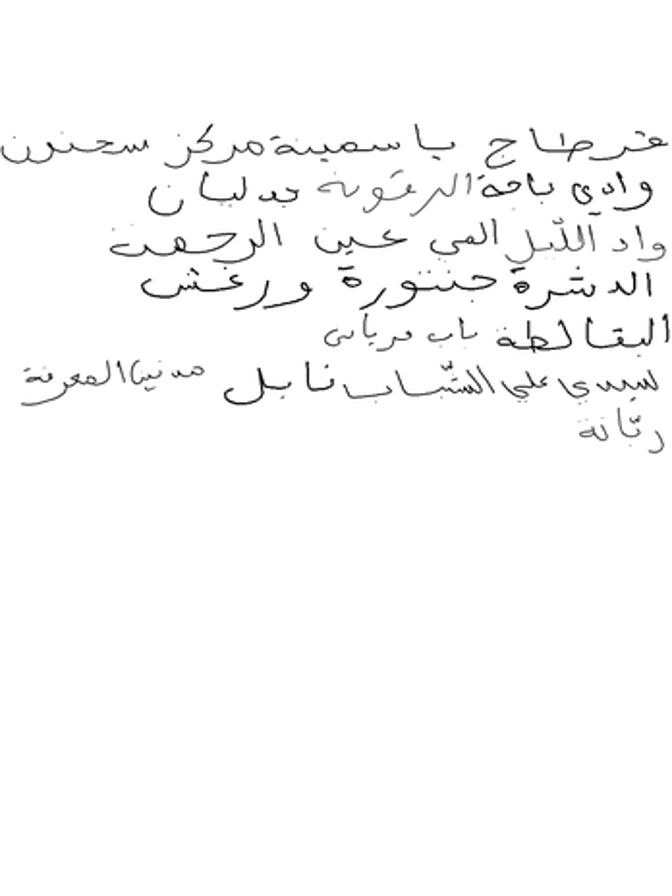 قرطاج ياسمينة مركز سحنون
وادي باجة الرقوبة جدليان
واد الليل الفي عين الرحمت
الدشرة جننورة ورغش
البقالطة باب
سيدي علي الشّباب نابل المعرفة
ربّانة